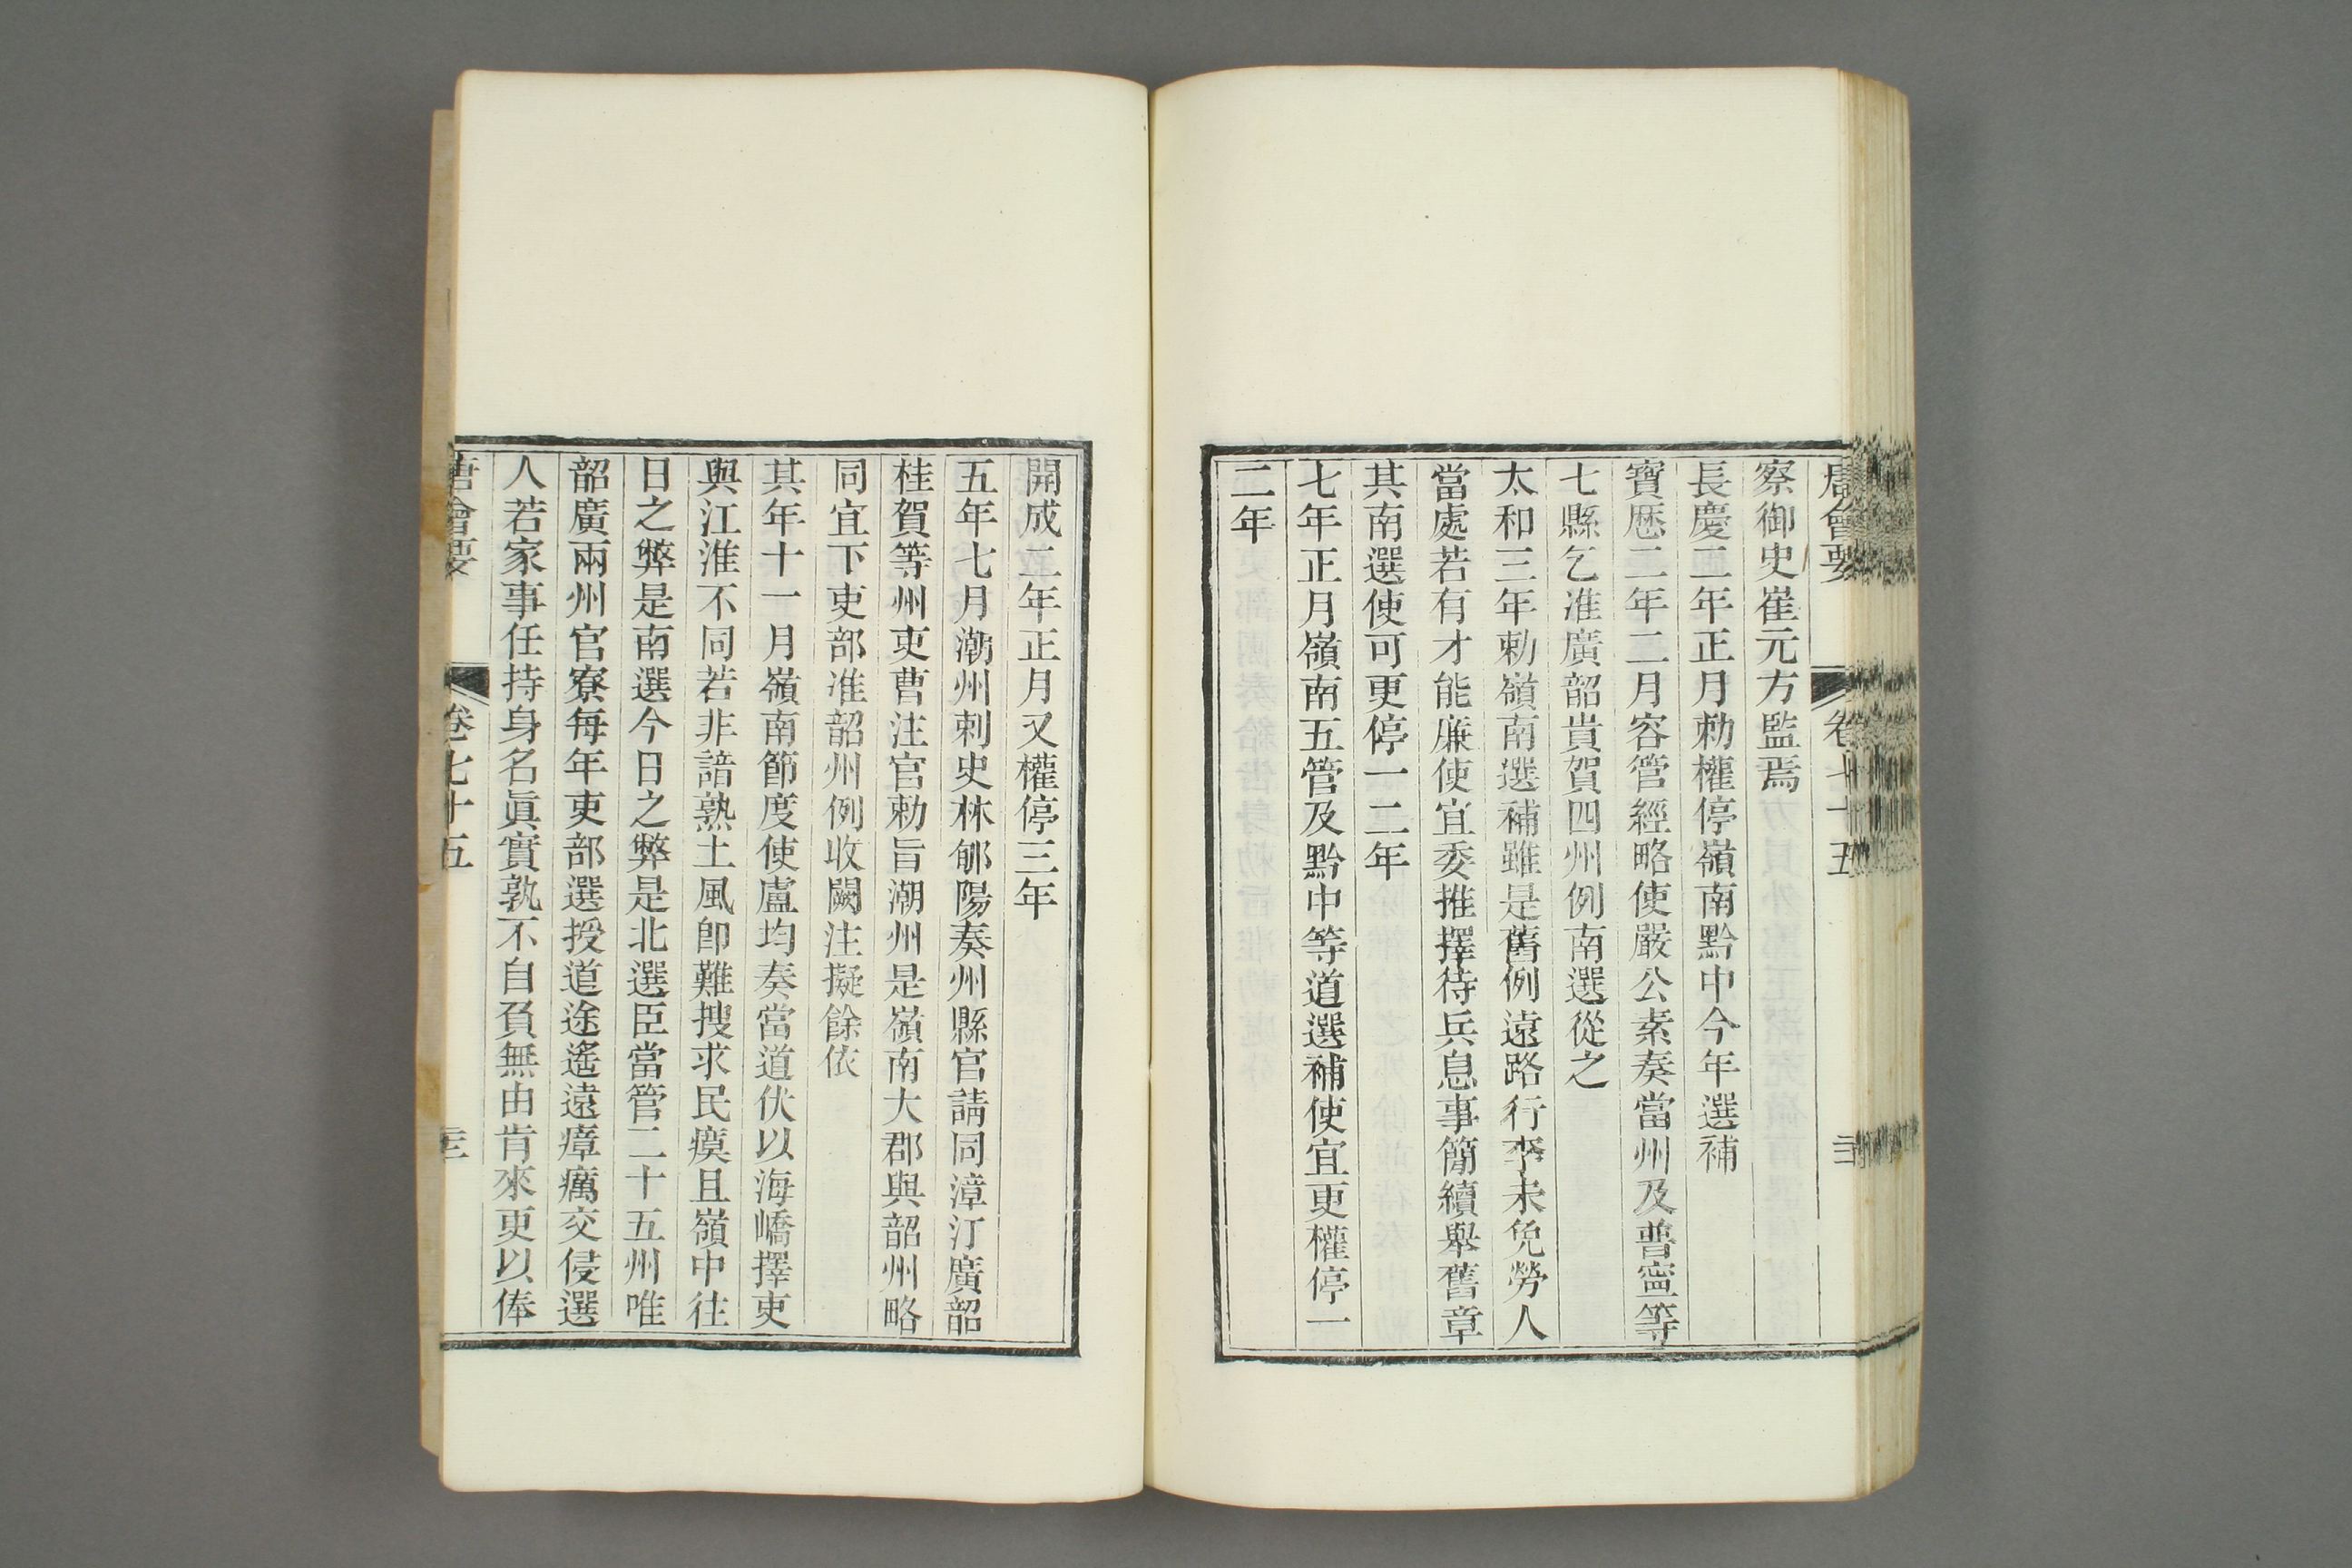 唐會要 卷七十五
察御史崔元方監焉
長慶二年正月勅權停嶺南黔中今年選補
寶歷二年二月容管經略使嚴公素奏當州及普寧等
七縣乞准廣韶貴賀四州例南選從之
太和三年勅嶺南選補雖是舊例遠路行李未免勞人
當處若有才能廉使宜委推擇待兵息事簡續舉舊章
其南選使可更停一二年
七年正月嶺南五管及黔中等道選補使宜更權停一
二年
開成二年正月又權停三年
五年七月潮州刺史林郇陽奏州縣官請同漳汀廣韶
桂賀等州吏曹注官勅旨潮州是嶺南大郡與韶州略
同宜下吏部准韶州例收闕注擬餘依
其年十一月嶺南節度使盧均奏當道伏以海嶠擇吏
與江淮不同若非諳熟土風即難搜求民瘼且嶺中往
日之弊是南選今日之弊是北選臣當管二十五州唯
韶廣兩州官寮每年吏部選授道途遙遠瘴癘交侵選
人若家事任持身名眞實孰不自負無由肯來更以俸
唐會要 卷七十五